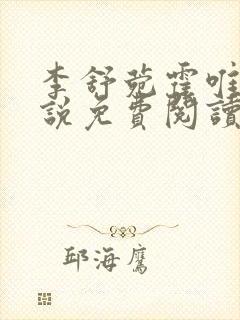 李舒菀霍唯
說免費閱讀
邱海鷹